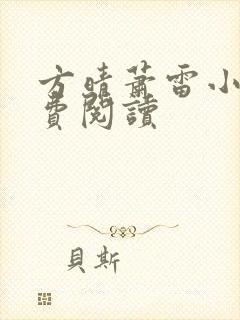 方晴蕭雷小
費閱讀
貝斯